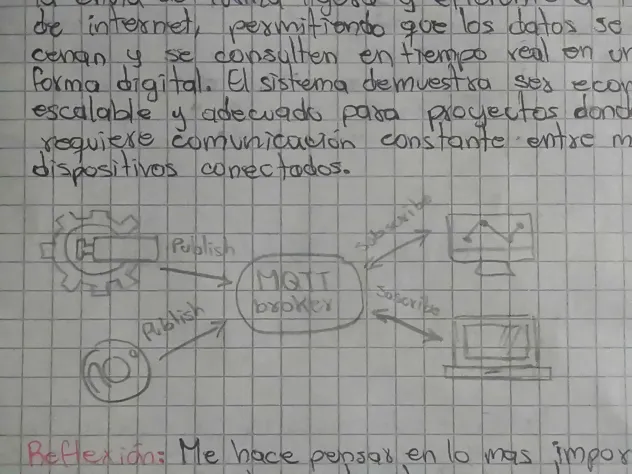 de internet, permitiendo que los datos se
cenan y se consulten en tiempo real en un
forma digital. El sistema demuestra ser econ
escalable y adecuado para proyectos dond
requiere comunicación constante entre m
dispositivos conectados.
Publish
Subscribe
MQTT
broker
Publish
Suscribe
Reflexión: Me hace pensar en lo mas impor